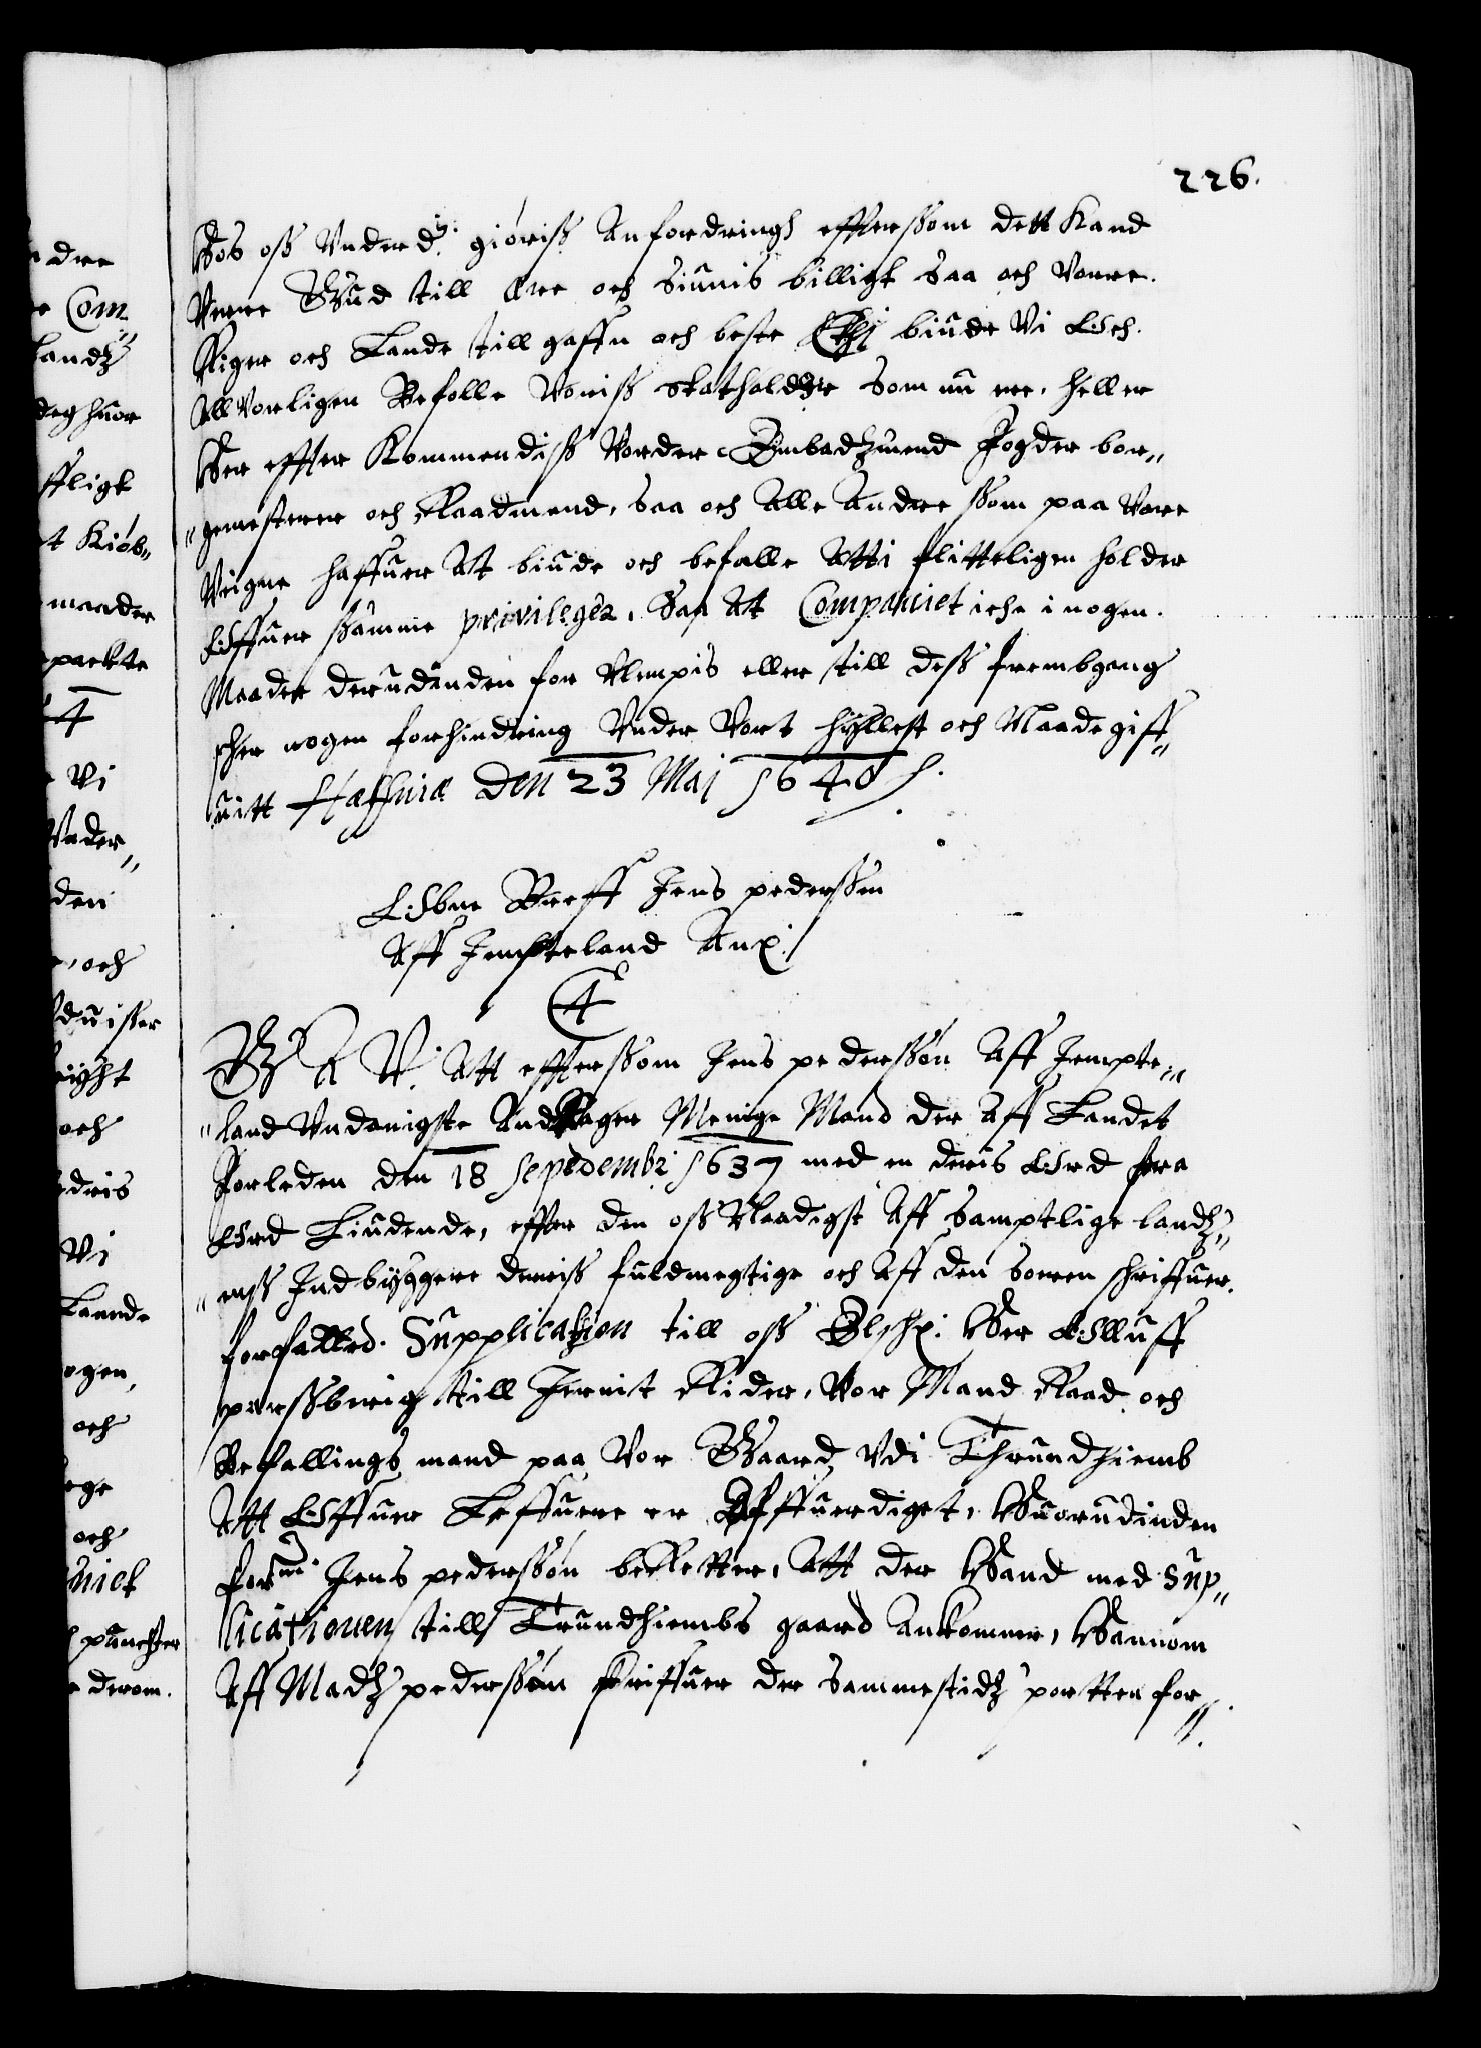 226.
Hos oss Underd: giöriss Anfordringh effterssom dett Kand
Verre Gud till ære och siunis billigt saa och Vorre
Riger och Lande till gaffn och beste Thj biude Vi och
All Vorligen Befalle Voriss statholdere som nu ere, heller
Her effter Kommendiss Vorder Embadzmend Fogder bor„
„gemesterer och Raadmend, saa och Alle Andre ssom paa Vore
Veigne haffuer At biude och befalle Atti flitteligen holder
Offuer ssamme privileger, Saa At Companiet iche i nogen
Maader derudinden for Klempis eller till dess frembgang
scher nogen forhindring Vnder Vort hyllest och Naade giff„
uitt Haffniæ Den 23 Maj 1640.
Obne Breff Jens pederssen
Aff Jempteland Anp:
C 4
G A V. Att effterssom Jens pederssøn Aff Jempte„
„land Vndanigste Andrager Menige Mand der Aff Landet
Forleden den 18 Septembr 1637 med en deris Ord fra
Ord Liudende, effter den oss Naadigst Aff Samptlige landz„
„enss Indbyggere deriss fuldmegtige och Aff den sorren schriffuer
forfatted. Supplication till oss Elsch: Her Olluff
parssberig till Jernit Rider, Vor Mand Raad och
Befallings mand paa Vor Gaard Vdi Thrundhiemb
Att Offuer Leffuere er Affuerdiget, Huorudinden
for:ne Jens pederssøn beretter, Att der Hand med Sup„
licationen till Trundhiembs gaard Ankomme, Hannom
Aff Madz pederssøn skriffuer der sammestidz portten for„